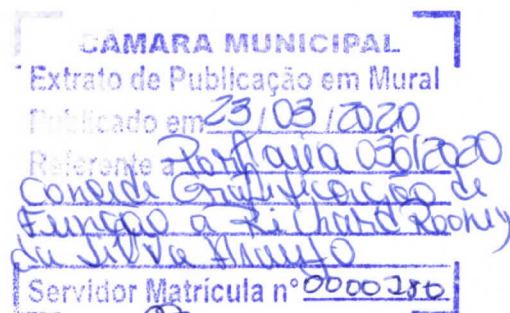 CÂMARA MUNICIPAL
Extrato de Publicação em Mural
Publicado em 23/03/2020
Referente a Portaria 036/2020
Concede Gratificação de
Função a Richard Rooney
da Silva Araujo
Servidor Matrícula n° 0000280